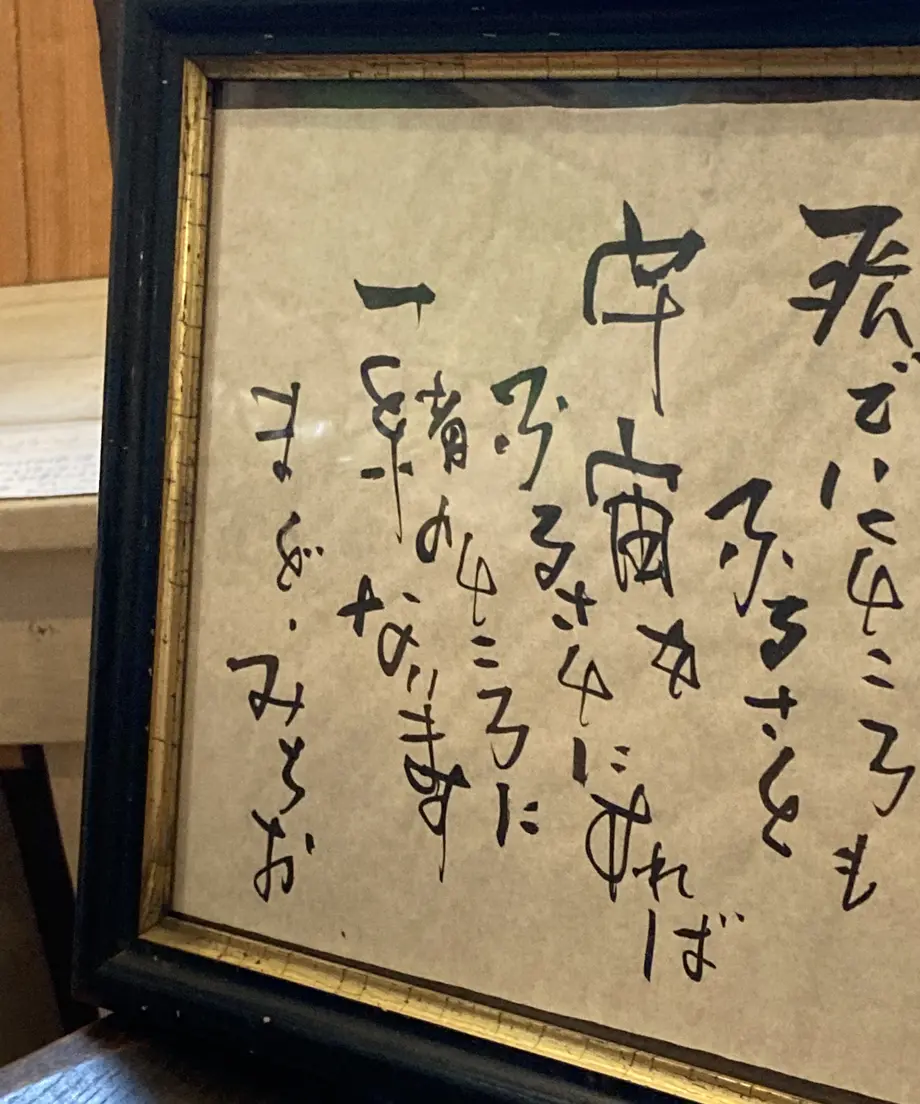 でい ところも
ふるさと
宇宙を
ふるさとにあれば
一緒のところに
なります
まど・みちお